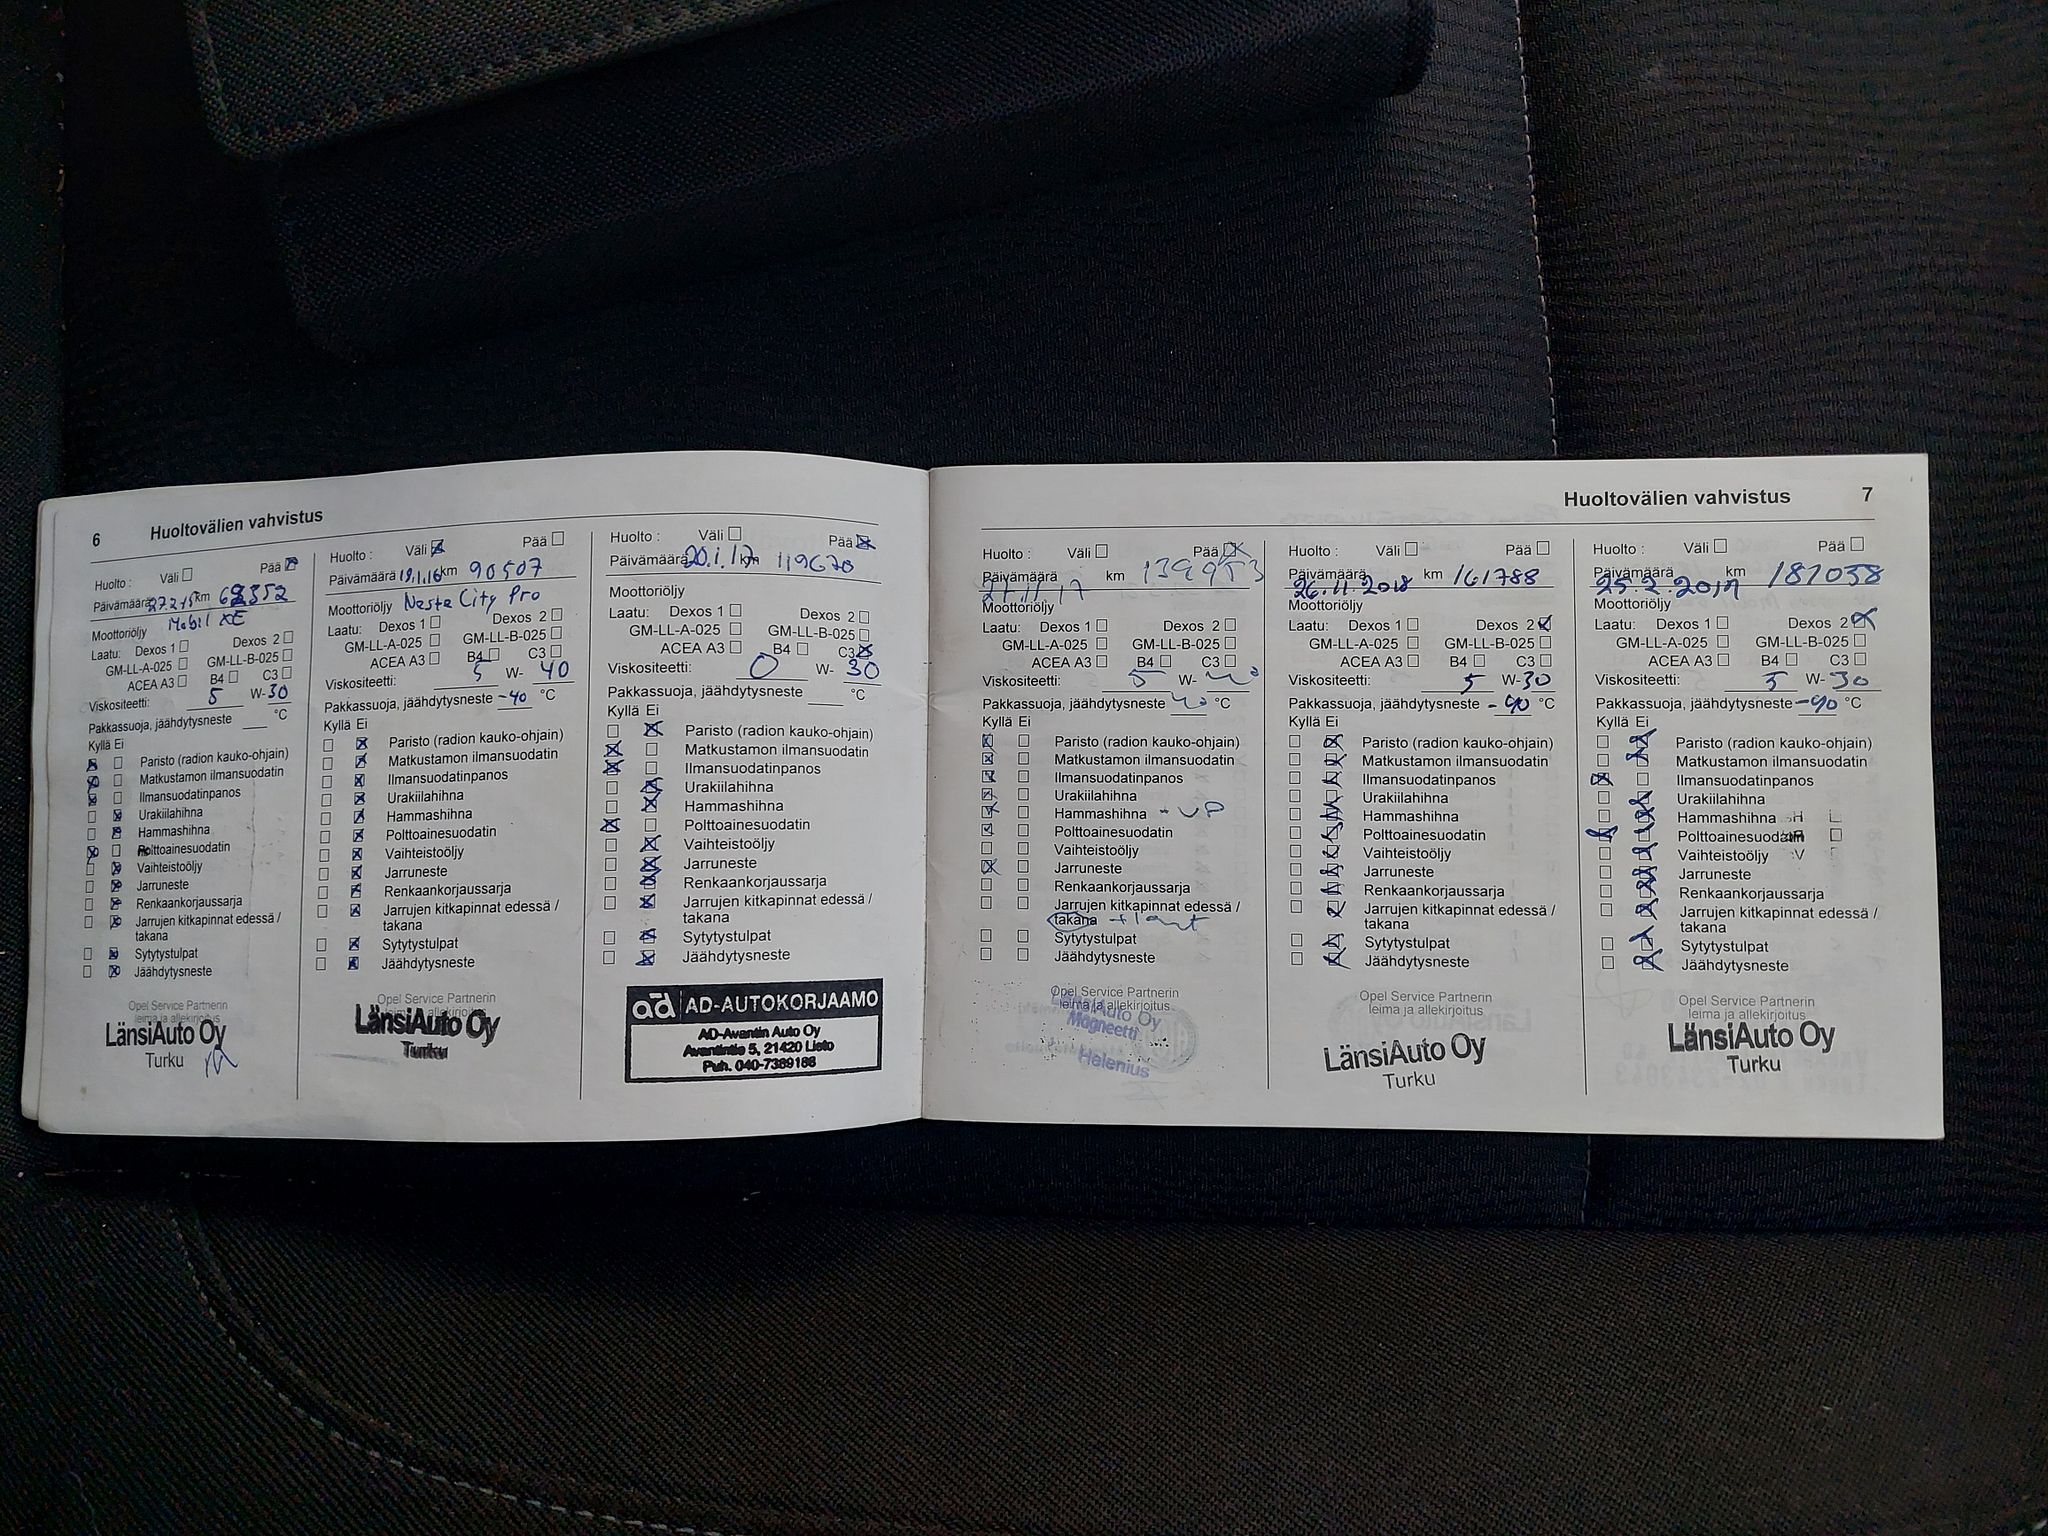 6 Huoltovälien vahvistus
Huolto : Väli Pää
Päivämäärä 27.2.15 km
Moottoriöljy Mobil XE
Laatu: Dexos 1 Dexos 2
GM-LL-A-025 GM-LL-B-025
ACEA A3 B4 C3
Viskositeetti: 5 W- 30
Pakkassuoja, jäähdytysneste °C
Kyllä Ei
Paristo (radion kauko-ohjain)
Matkustamon ilmansuodatin
Ilmansuodatinpanos
Urakiilahihna
Hammashihna
Polttoainesuodatin
Vaihteistoöljy
Jarruneste
Renkaankorjaussarja
Jarrujen kitkapinnat edessä /
takana
Sytytystulpat
Jäähdytysneste
Opel Service Partnerin
leima ja allekirjoitus
LänsiAuto Oy
Turku
Huolto : Väli Pää
Päivämäärä 19.1.16 km 90507
Moottoriöljy Neste City Pro
Laatu: Dexos 1 Dexos 2
GM-LL-A-025 GM-LL-B-025
ACEA A3 B4 C3
Viskositeetti: 5 W- 40
Pakkassuoja, jäähdytysneste -40 °C
Kyllä Ei
Paristo (radion kauko-ohjain)
Matkustamon ilmansuodatin
Ilmansuodatinpanos
Urakiilahihna
Hammashihna
Polttoainesuodatin
Vaihteistoöljy
Jarruneste
Renkaankorjaussarja
Jarrujen kitkapinnat edessä /
takana
Sytytystulpat
Jäähdytysneste
Opel Service Partnerin
leima ja allekirjoitus
LänsiAuto Oy
Turku
Huolto : Väli Pää
Päivämäärä 20.1.17 km 119670
Moottoriöljy
Laatu: Dexos 1 Dexos 2
GM-LL-A-025 GM-LL-B-025
ACEA A3 B4 C3
Viskositeetti: 0 W- 30
Pakkassuoja, jäähdytysneste °C
Kyllä Ei
Paristo (radion kauko-ohjain)
Matkustamon ilmansuodatin
Ilmansuodatinpanos
Urakiilahihna
Hammashihna
Polttoainesuodatin
Vaihteistoöljy
Jarruneste
Renkaankorjaussarja
Jarrujen kitkapinnat edessä /
takana
Sytytystulpat
Jäähdytysneste
ad AD-AUTOKORJAAMO
AD-Avantin Auto Oy
Avantintie 5, 21420 Lieto
Puh. 040-7389188
Huoltovälien vahvistus 7
Huolto : Väli Pää
Päivämäärä km
Moottoriöljy
Laatu: Dexos 1 Dexos 2
GM-LL-A-025 GM-LL-B-025
ACEA A3 B4 C3
Viskositeetti: 5 W- 40
Pakkassuoja, jäähdytysneste 40 °C
Kyllä Ei
Paristo (radion kauko-ohjain)
Matkustamon ilmansuodatin
Ilmansuodatinpanos
Urakiilahihna
Hammashihna - VP
Polttoainesuodatin
Vaihteistoöljy
Jarruneste
Renkaankorjaussarja
Jarrujen kitkapinnat edessä /
takana
Sytytystulpat
Jäähdytysneste
Opel Service Partnerin
leima ja allekirjoitus
LänsiAuto Oy
Magneetti
Helenius
Huolto : Väli Pää
Päivämäärä 26.11.2018 km 161788
Moottoriöljy
Laatu: Dexos 1 Dexos 2
GM-LL-A-025 GM-LL-B-025
ACEA A3 B4 C3
Viskositeetti: 5 W- 30
Pakkassuoja, jäähdytysneste -40 °C
Kyllä Ei
Paristo (radion kauko-ohjain)
Matkustamon ilmansuodatin
Ilmansuodatinpanos
Urakiilahihna
Hammashihna
Polttoainesuodatin
Vaihteistoöljy
Jarruneste
Renkaankorjaussarja
Jarrujen kitkapinnat edessä /
takana
Sytytystulpat
Jäähdytysneste
Opel Service Partnerin
leima ja allekirjoitus
LänsiAuto Oy
Turku
Huolto : Väli Pää
Päivämäärä km 181038
Moottoriöljy
Laatu: Dexos 1 Dexos 2
GM-LL-A-025 GM-LL-B-025
ACEA A3 B4 C3
Viskositeetti: 5 W- 30
Pakkassuoja, jäähdytysneste -40 °C
Kyllä Ei
Paristo (radion kauko-ohjain)
Matkustamon ilmansuodatin
Ilmansuodatinpanos
Urakiilahihna
Hammashihna
Polttoainesuodatin
Vaihteistoöljy
Jarruneste
Renkaankorjaussarja
Jarrujen kitkapinnat edessä /
takana
Sytytystulpat
Jäähdytysneste
Opel Service Partnerin
leima ja allekirjoitus
LänsiAuto Oy
Turku